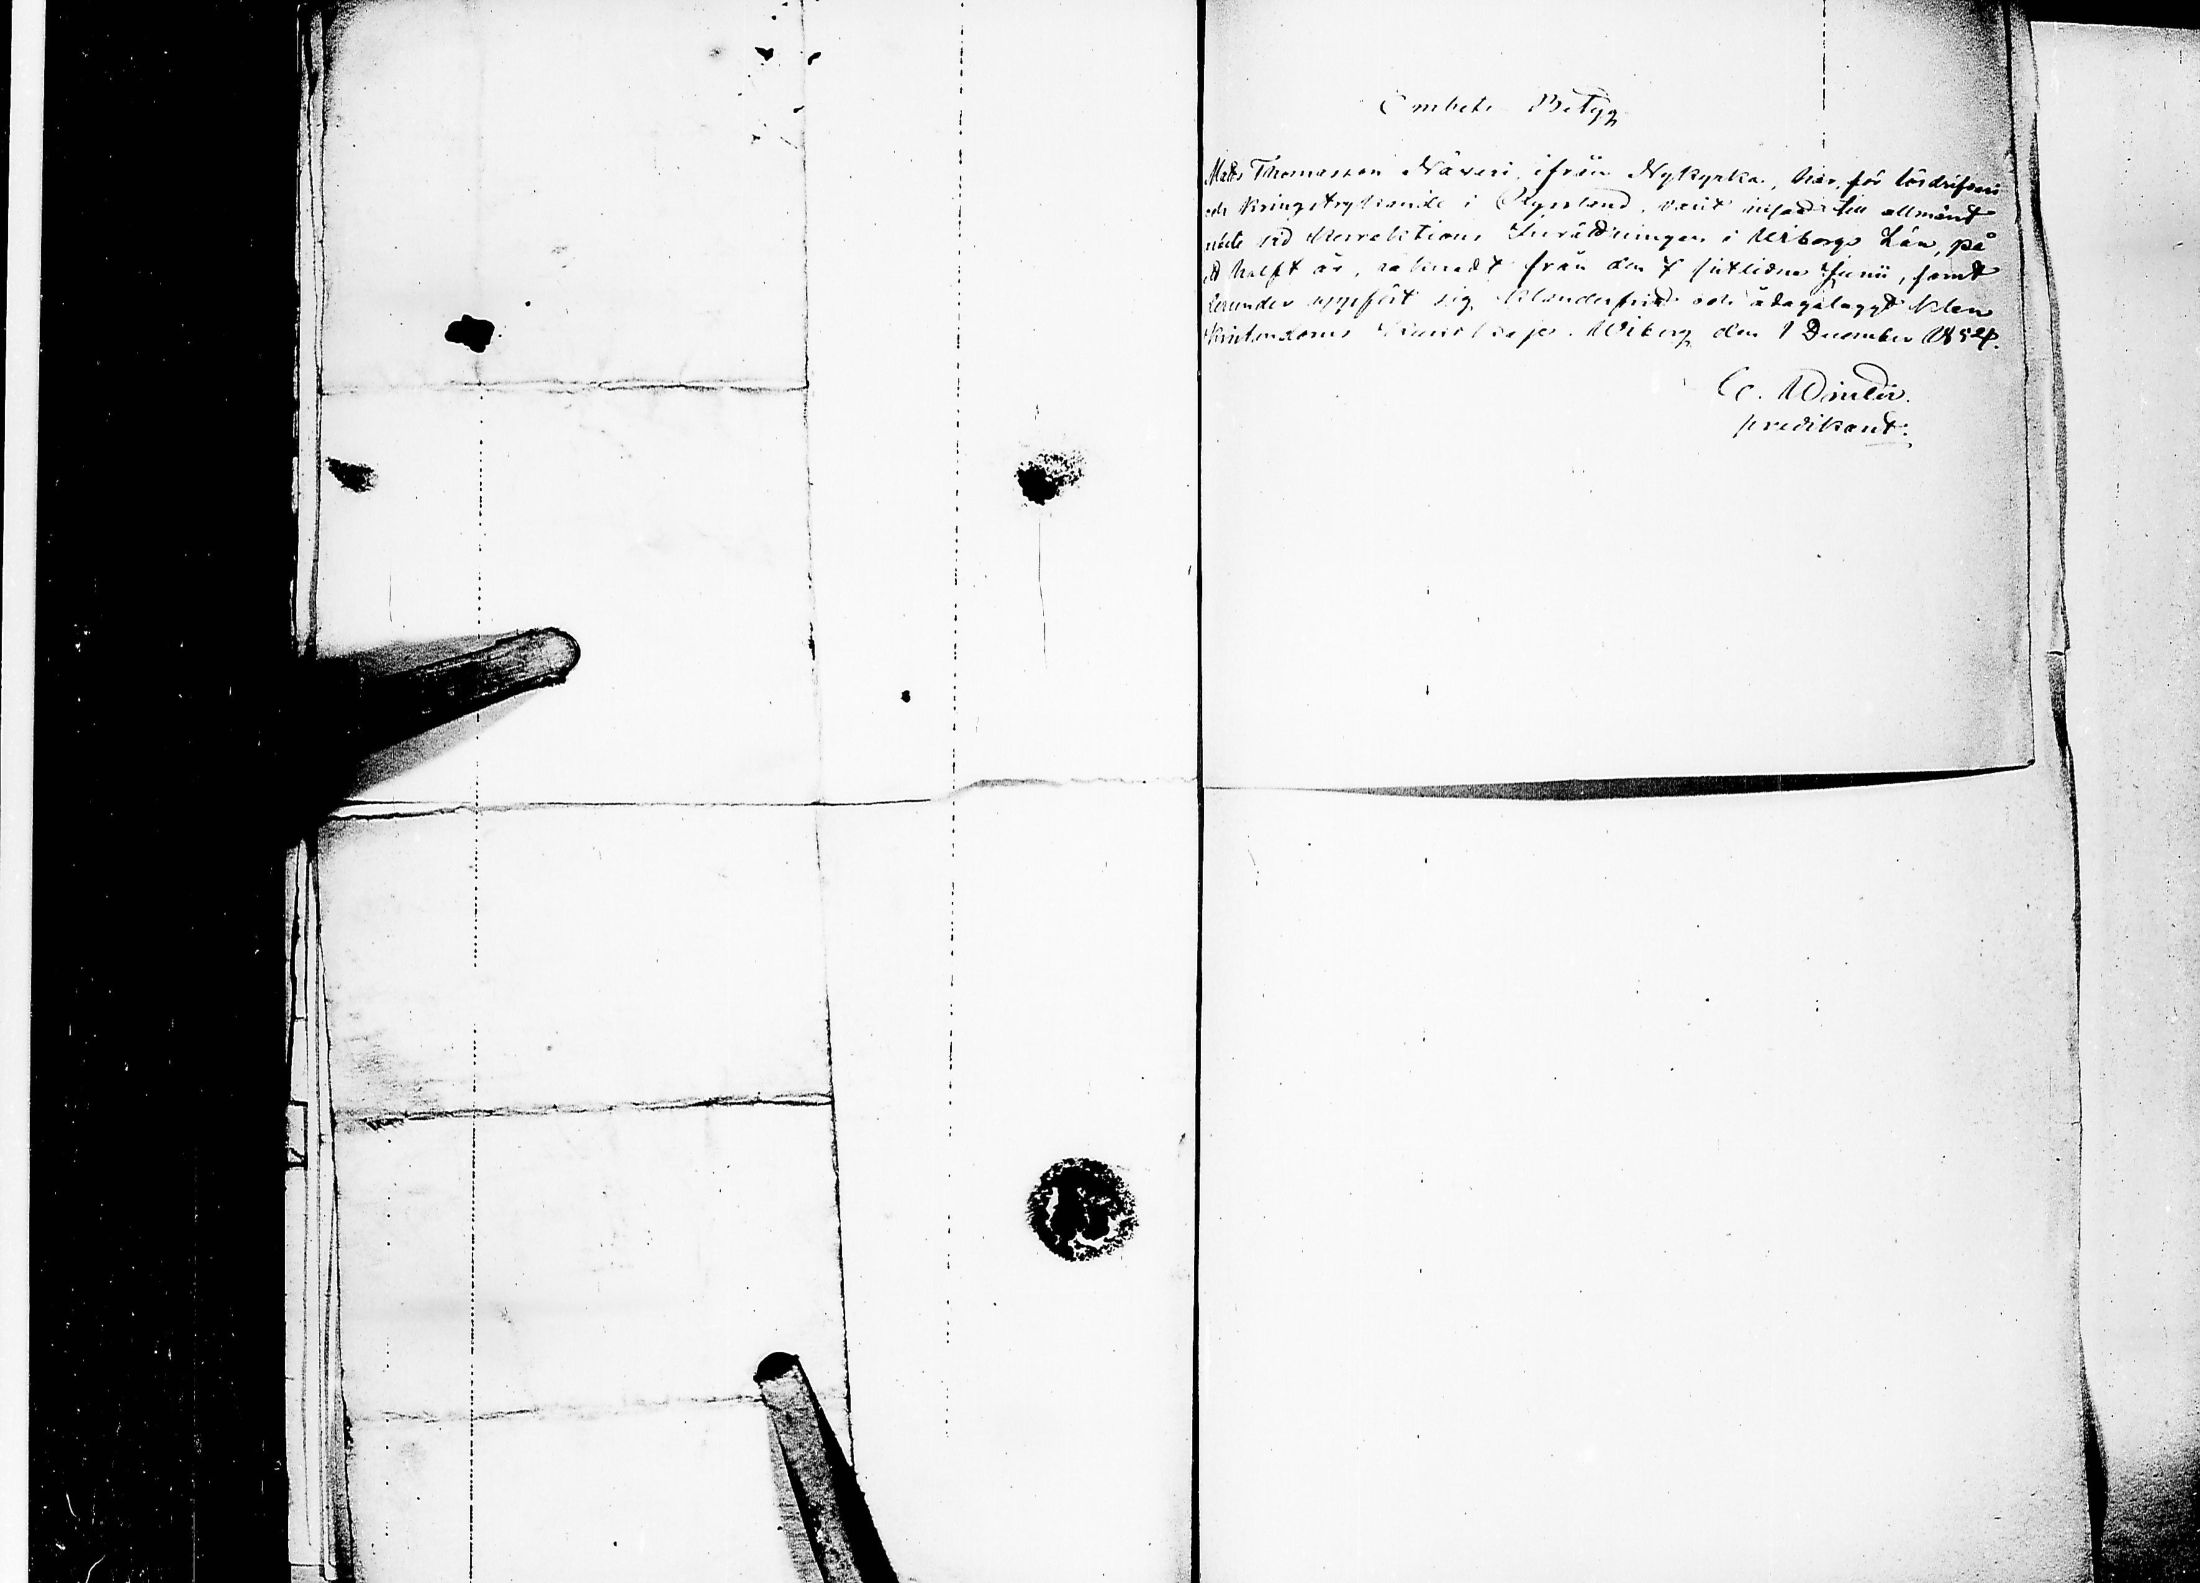 Embets Betyg
Mats Thomasson Näveri, ifrån Nykyrka, har, för lösdrifveri
och kringstrykande i Ryssland, varit insatt till allmänt
arbete vid Korrektions Inrättningen i Wiborgs Län, på
ett halft år, räknadt från den 7 sistlidne Junii, samt
derunder uppfört sig klanderfritt och ådagalaggt klen
Kristendoms kunskap. Wiborg den 1 December 1854.
predikant.